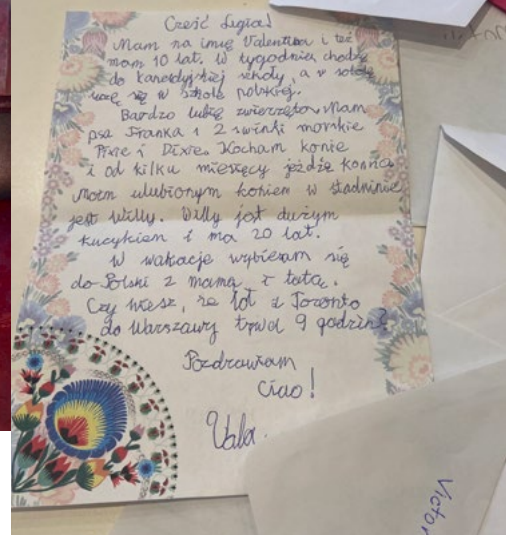 Cześć Ligia!
Mam na imię Valentina i też
mam 10 lat. W tygodniu chodzę
do kanadyjskiej szkoły, a w sobotę
uczę się w szkole polskiej.
Bardzo lubię zwierzęta. Mam
psa Franka i 2 świnki morskie
Pixie i Dixie. Kocham konie
i od kilku miesięcy jeżdżę konno.
Moim ulubionym koniem w stadninie
jest Willy. Willy jest dużym
kucykiem i ma 20 lat.
W wakacje wybieram się
do Polski z mamą i tatą.
Czy wiesz, że lot z Toronto
do Warszawy trwa 9 godzin?
Pozdrawiam
Ciao!
Vala.
Victor